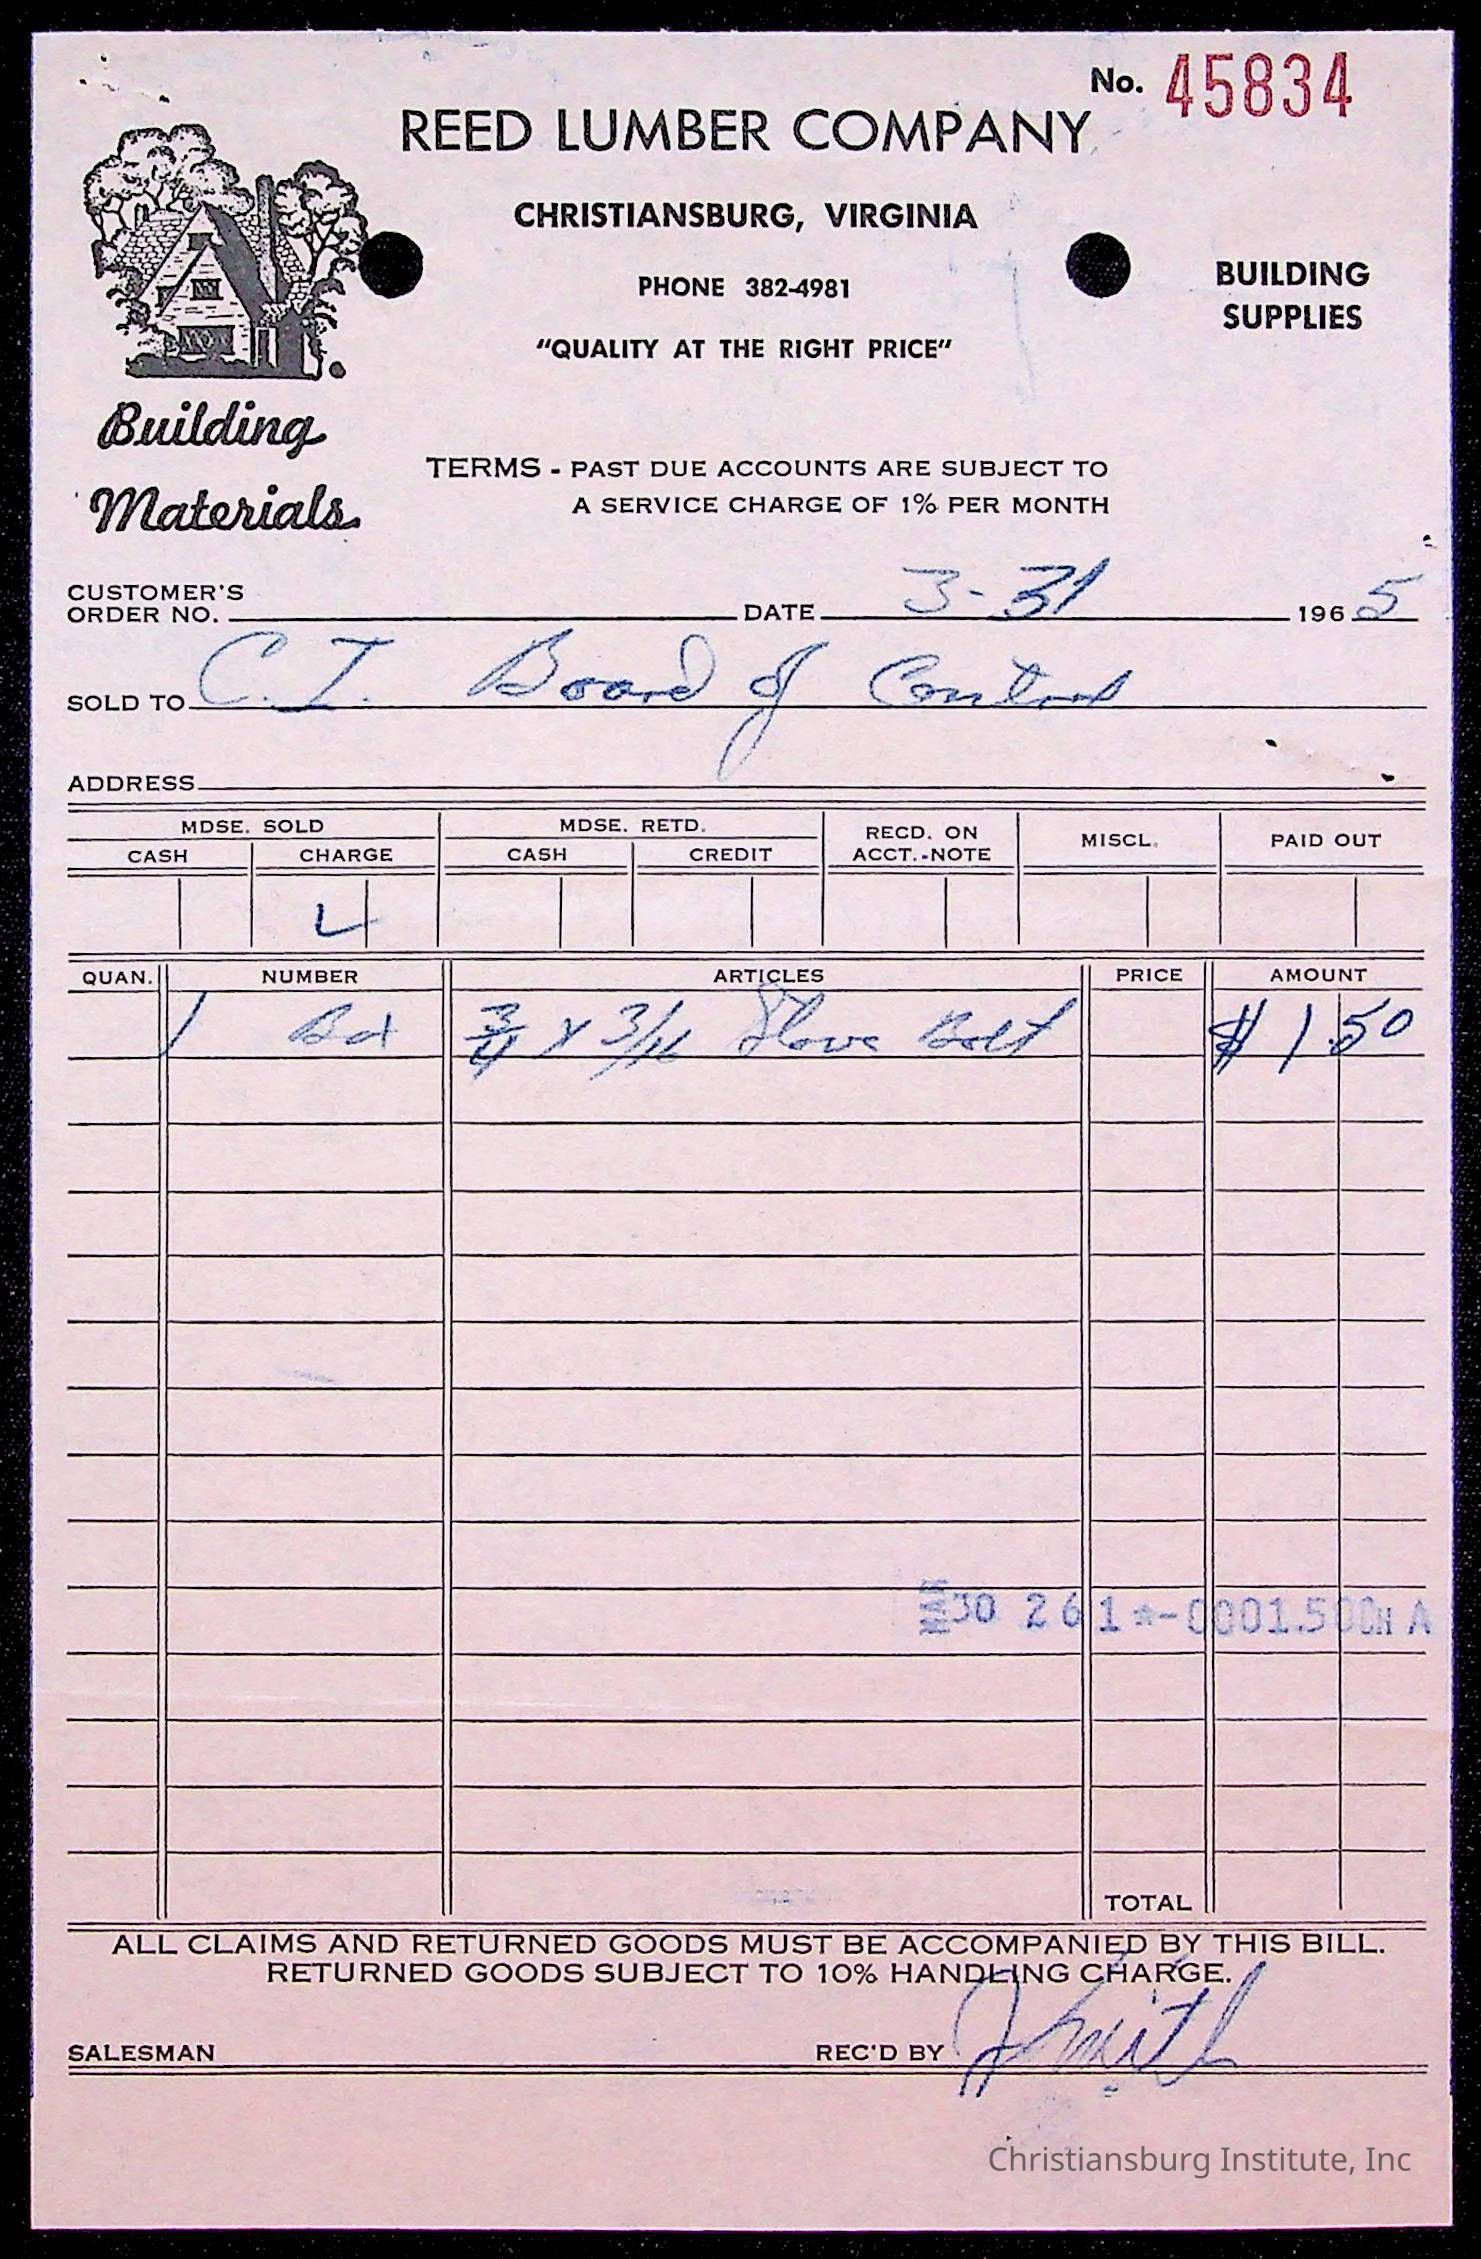 No. 45834
REED LUMBER COMPANY
CHRISTIANSBURG, VIRGINIA
PHONE 382-4981
"QUALITY AT THE RIGHT PRICE"
BUILDING
SUPPLIES
Building
Materials
TERMS - PAST DUE ACCOUNTS ARE SUBJECT TO
A SERVICE CHARGE OF 1% PER MONTH
CUSTOMER'S
ORDER NO. DATE 3-31 1965
SOLD TO C. I. Board of Control
ADDRESS
MDSE. SOLD MDSE. RETD. RECD. ON ACCT.-NOTE MISCL. PAID OUT
CASH CHARGE CASH CREDIT
QUAN. NUMBER ARTICLES PRICE AMOUNT
1 Box 3/4 x 3/16 Stove Bolt $1.50
MAR 30 261*-0001.50CH A
TOTAL
ALL CLAIMS AND RETURNED GOODS MUST BE ACCOMPANIED BY THIS BILL.
RETURNED GOODS SUBJECT TO 10% HANDLING CHARGE.
SALESMAN REC'D BY Smith
Christiansburg Institute, Inc